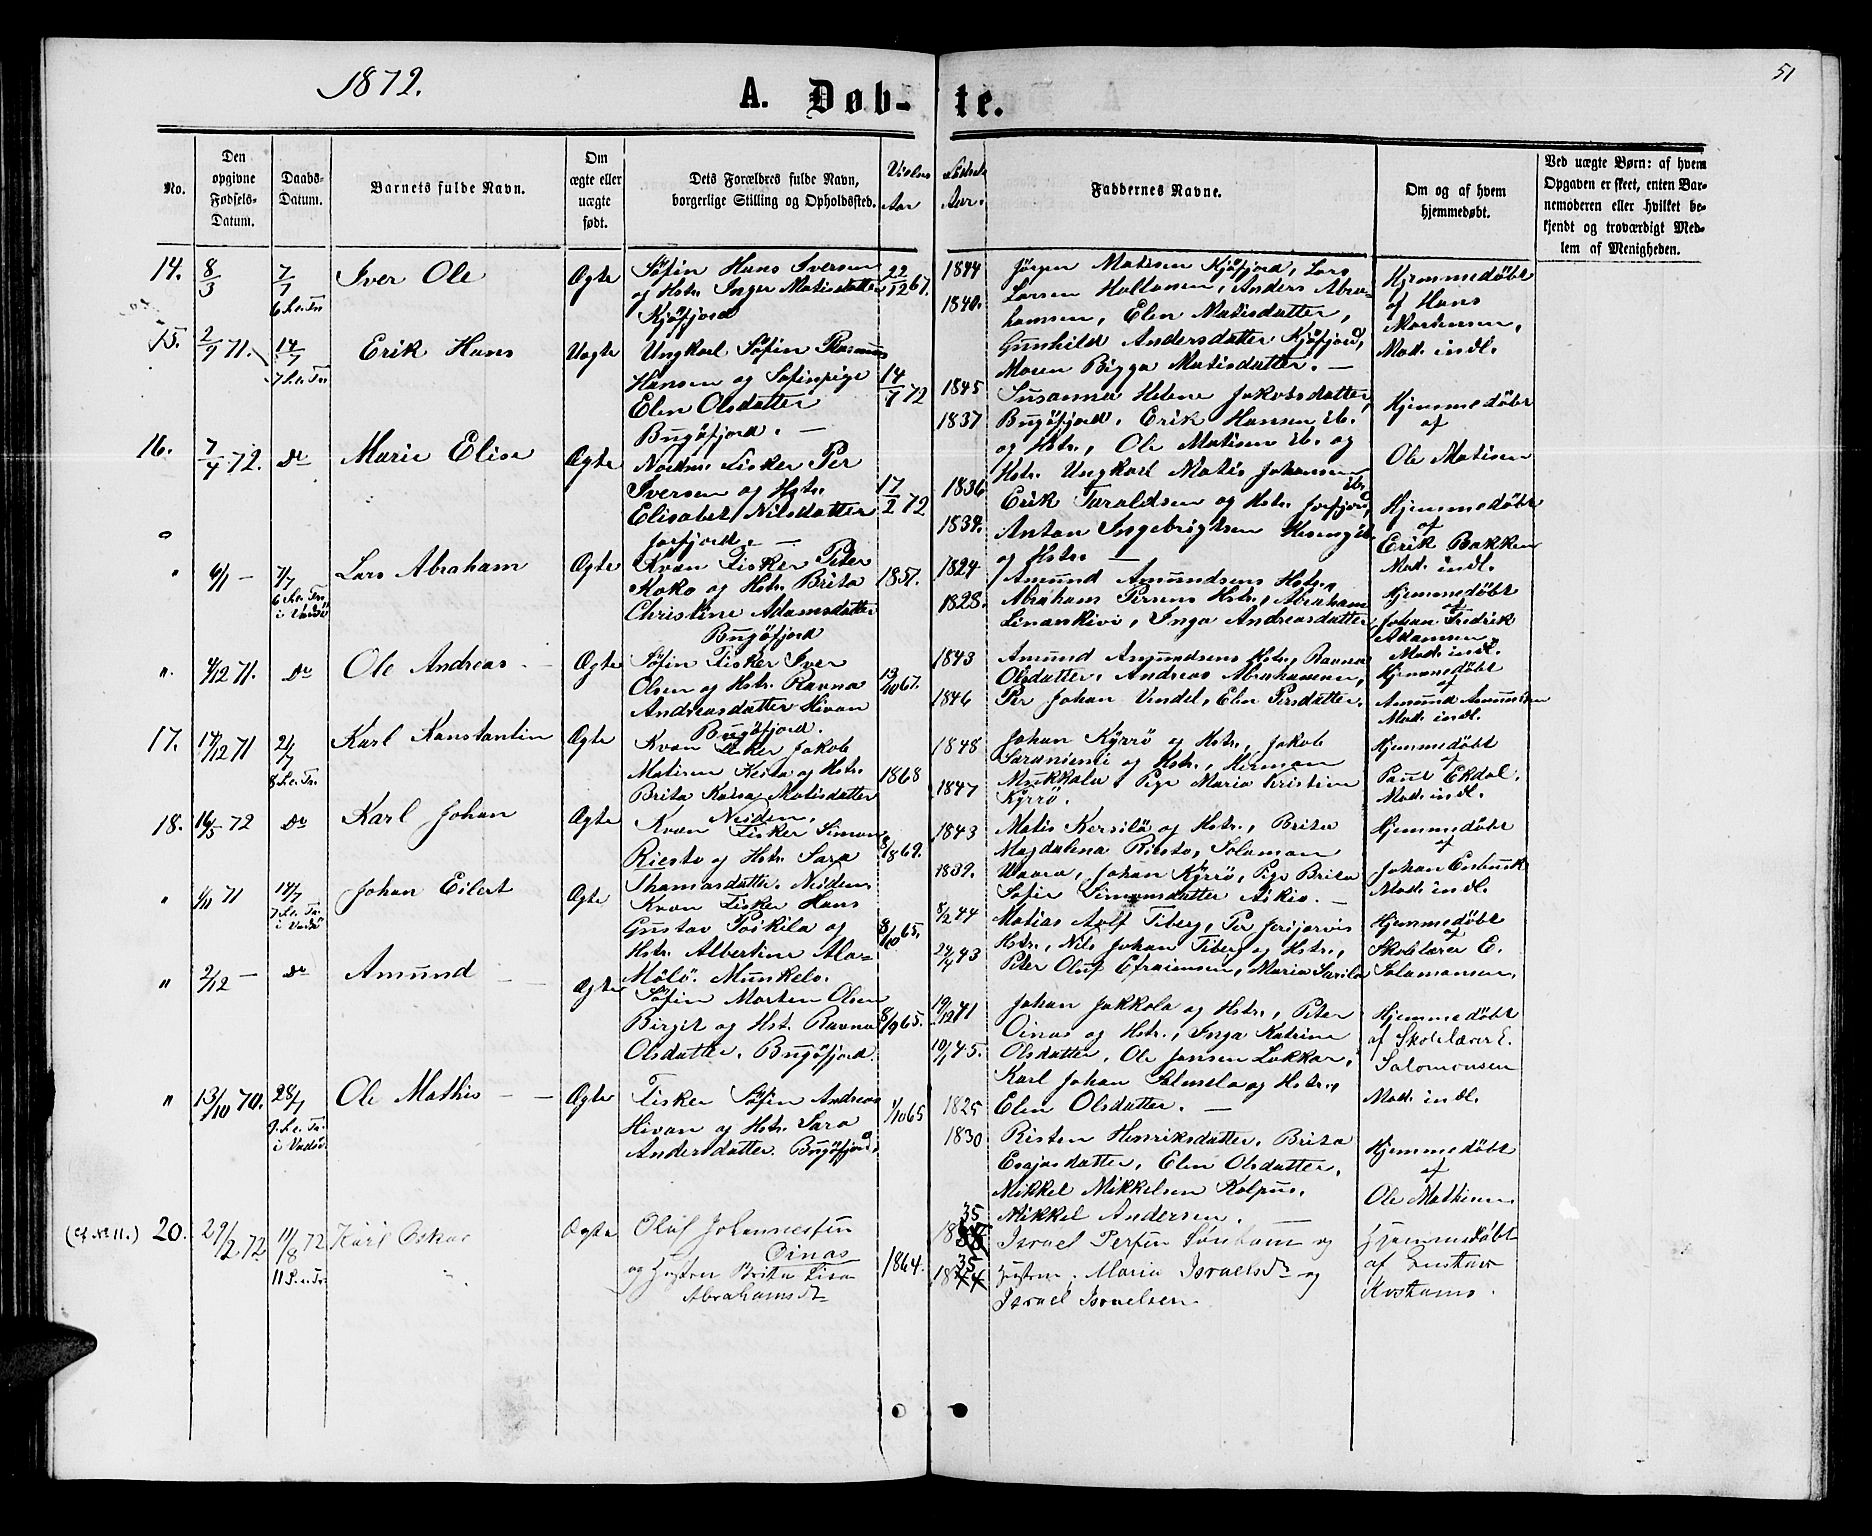 1872.
A. Døb-
te.
51
No.
Den
opgivne
Fødsels-
Datum.
Daabs-
Datum.
Barnets fulde Navn.
Om
ægte eller
uægte
født.
Dets Forældres fulde Navn,
borgerlige Stilling og Opholdssted.
Vielses
Aar
Fødsels
Aar.
Faddernes Navne.
Om og af hvem
hjemmedøbt.
Ved uægte Børn: af hvem
Opgaven er skeet, enten Bar-
nemoderen eller hvilket be-
kjendt og troværdigt Med-
lem af Menigheden.
14.
8/3
7/7
6 S. e. Tr
Iver Ole
Ægte
Søfin Hans Iversen
og Hstr. Inger Matisdatter
Kjøfjord
22/12 67.
1844
1840.
Jörgen Matisen Kjøfjord, Lars
Larsen Holtanen, Anders Abra-
hamsen, Elen Matisdatter,
Gunhild Andersdatter Kjøfjord,
Maren Bigga Matisdatter. —
Hjemmedøbt
af Hans
Mortensen,
Mod. indl.
15.
2/9 71.
14/7
7 S. e. Tr
Erik Hans
Uægte
Ungkarl Søfin Rasmus
Hansen og Søfinpige
Elen Olsdatter
Bugøfjord. —
14/7 72
1845
1837
Susanna Helene Jakobsdatter,
Bugøfjord. Erik Hansen ib.
og Hstr., Ole Matisen ib. og
Hstr. Ungkarl Matis Johansen ib.
Hjemmedøbt
af
Ole Matisen
16.
7/4 72.
Do
Marie Elise
Ægte
Nordm. Fisker Per
Iversen og Hstr.
Elisabet Nilsdatter
Jarfjord. —
17/2 72
1836
1839.
Erik Taraldsen og Hstr. Jarfjord,
Anton Ingebrigtsen
og Hstr. —
Hjemmedøbt
af
Erik Bakken
Mod. indl.
"
6/1 —
7/7
6 S. e. Tr.
i Vadsø
Lars Abraham
Ægte
Kvæn Fisker Peter
Koko og Hstr. Brita
Christine Adamsdatter
Bugøfjord
1857.
1824
1828.
Amund Amundsens Hstr.,
Abraham Persens Hstr., Abraham
Linankivi, Inga Andreasdatter
Hjemmedøbt
af
Johan Fredrik
Adamsen
Mod. indl.
".
4/12 71.
Do
Ole Andreas —
Ægte
Søfin Fisker Iver
Olsen og Hstr. Ravna
Andreasdatter Hivan
Bugøfjord.
13/10 67.
1843
1846
Amund Amundsens Hstr., Ravna
Olsdatter, Andreas Abrahamsen,
Per Johan Vendel, Elen Persdatter.
Hjemmedøbt
af
Amund Amundsen
Mod. indl.
17.
14/12 71
21/7
8 S. e. Tr.
Karl Konstantin
Ægte
Kvæn Fisker Jakob
Matisen Keisa og Hstr.
Brita Kaisa Matisdatter
Neiden.
1868
1848
1847
Johan Kyrrö og Hstr., Jakob
Saraniemi og Hstr., Herman
Mukkala, Pige Maria Kristine
Kyrrö.
Hjemmedøbt
af
Paul Ekdal.
Mod. indl.
18.
16/5 72
Do
Karl Johan
Ægte
Kvæn Fisker Simon
Riesto og Hstr. Sara
Thomasdatter. Neiden.
3/8 69.
1843
1839.
Matis Kersilö og Hstr., Brita
Magdalena Riesto, Salamon
Vaara, Johan Kyrrö, Pige Brita
Sofie Simonsdatter Äikiö. —
Hjemmedøbt
af
Johan
Mod. indl.
"
1/11 71
14/7
7 S. e. Tr.
i Vadsø
Johan Eilert
Ægte
Kvæn Fisker Hans
Gustav Poikila og
Hstr. Albertine Ala-
Mölö. Munkelv.
8/10 65.
8/2 44
24/4 43
Matias Adlf Fiberg, Per Jerijærvis
Hstr., Nils Johan Fiberg og Hstr.,
Peter Oluf Efraimsen, Maria Savila
Hjemmedøbt
af
Skolelærer E.
Salamonsen,
"
2/12 —
Do
Amund — —
Ægte
Søfin Morten Olsen
Birgit og Hst. Ravna
Olsdatter. Bugøfjord.
8/9 65.
19/12 41
10/1 45.
Johan Jakkola og Hstr., Peter
Oinas og Hstr., Inga Katrine
Olsdatter, Ole Jansen Lukkar,
Karl Johan Salmela og Hstr.,
Elen Olsdatter. —
Hjemmedøbt
af Skolelærer E.
Salomonsen
Mod. indl.
"
13/10 70.
28/7
9 S. e. Tr.
i Vadsø.
Ole Mathis — —
Ægte
Fisker Søfin Andreas
Hivan og Hstr. Sara
Andersdatter. Bugøfjord,
1/10 65
1825
1830
Risten Henriksdatter, Brita
Esajasdatter, Elen Olsdatter,
Mikkel Mikkelsen Kolpus,
Mikkel Andersen. —
Hjemmedøbt
af
Ole Mathisen
(Cf. No 11.)
20.
29/2 72
11/8 72
11 S. e. Tr.
Karl Oskar
Ægte
Oluf Johannessen
Oinas
og Hustru Brita Lisa
Abrahamsdr
1864.
1835
1835
Israel Persen og
Hustru, Maria Israelsdr og
Israel Israelsen.
Hjemmedøbt
af Gustav
Kostamo.